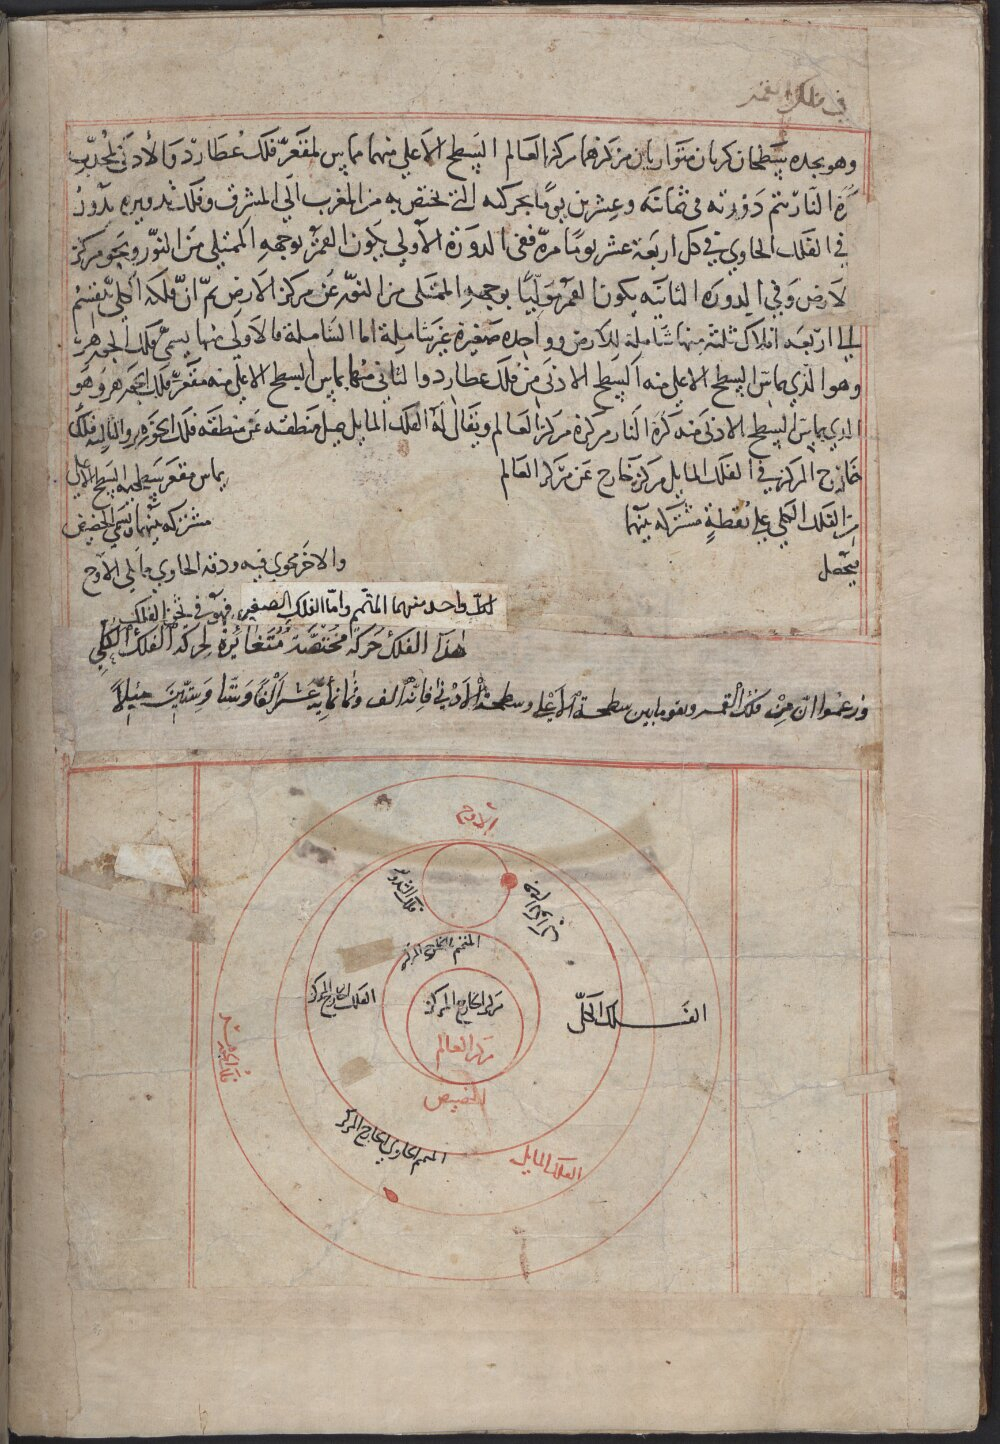 في فلك القمر
وهو يحده سطحان كريان متوازيان مركزهما مركز العالم السطح الاعلي منهما مماس لمقعر فلك عطارد والادني لمحدب
كرة النار تتم دورته في ثمانية وعشرين يوما بحركته التي تختص به من المغرب الي المشرق وفلك تدويره يدور
في الفلك الحاوي في كل اربعة عشر يوما مرة ففي الدورة الاولي يكون القمر بوجهه الممتلي من النور ونحو مركز
الارض وفي الدورة الثانية يكون القمر موليا بوجهه الممتلي من النور عن مركز الارض ثم ان فلكه الكلي ينقسم
الي اربعة افلاك ثلثة منها شاملة للارض وواحدة صغيرة غير شاملة اما الشاملة فالاولي منها يسمي فلك الجوزهر
وهو الذي يماس السطح الاعلي منه السطح الادني من فلك عطارد والثاني منها يماس السطح الاعلي منه مقعر فلك الجوزهر وهو
الذي يماس السطح الادني منه كرة النار مركزه مركز العالم ويقال له الفلك المايل لميل منطقته عن منطقة فلك الجوزهر والثالث فلك
خارج المركز في الفلك المايل مركز خارج عن مركز العالم يماس مقعر سطحيه السطح الاعلي
من الفلك الكلي علي نقطة مشتركة بينهما مشتركة بينهما تسمي الحضيض
فيحصل والاخر محوي فيه ورقة الحاوي مما يلي الاوج
لكل واحد منهما المتمم واما الفلك الصغير فهو في ثخن الفلك
هذا الفلك حركة مختصة متغائرة لحركة الفلك الكلي
وزعموا ان ثخن فلك القمر وهو ما بين سطحه الاعلي وسطحه الادني فانه الف وثمانية عشر الفا وستا وستين ميلا
الاوج
فلك التدوير
المتمم المحوي الخارج المركز
الفلك الخارج المركز
مركز الخارج المركز
الفلك الكلي
مركز العالم
فلك الجوزهر
الحضيض
المتمم الحاوي الخارج المركز
الفلك المايل